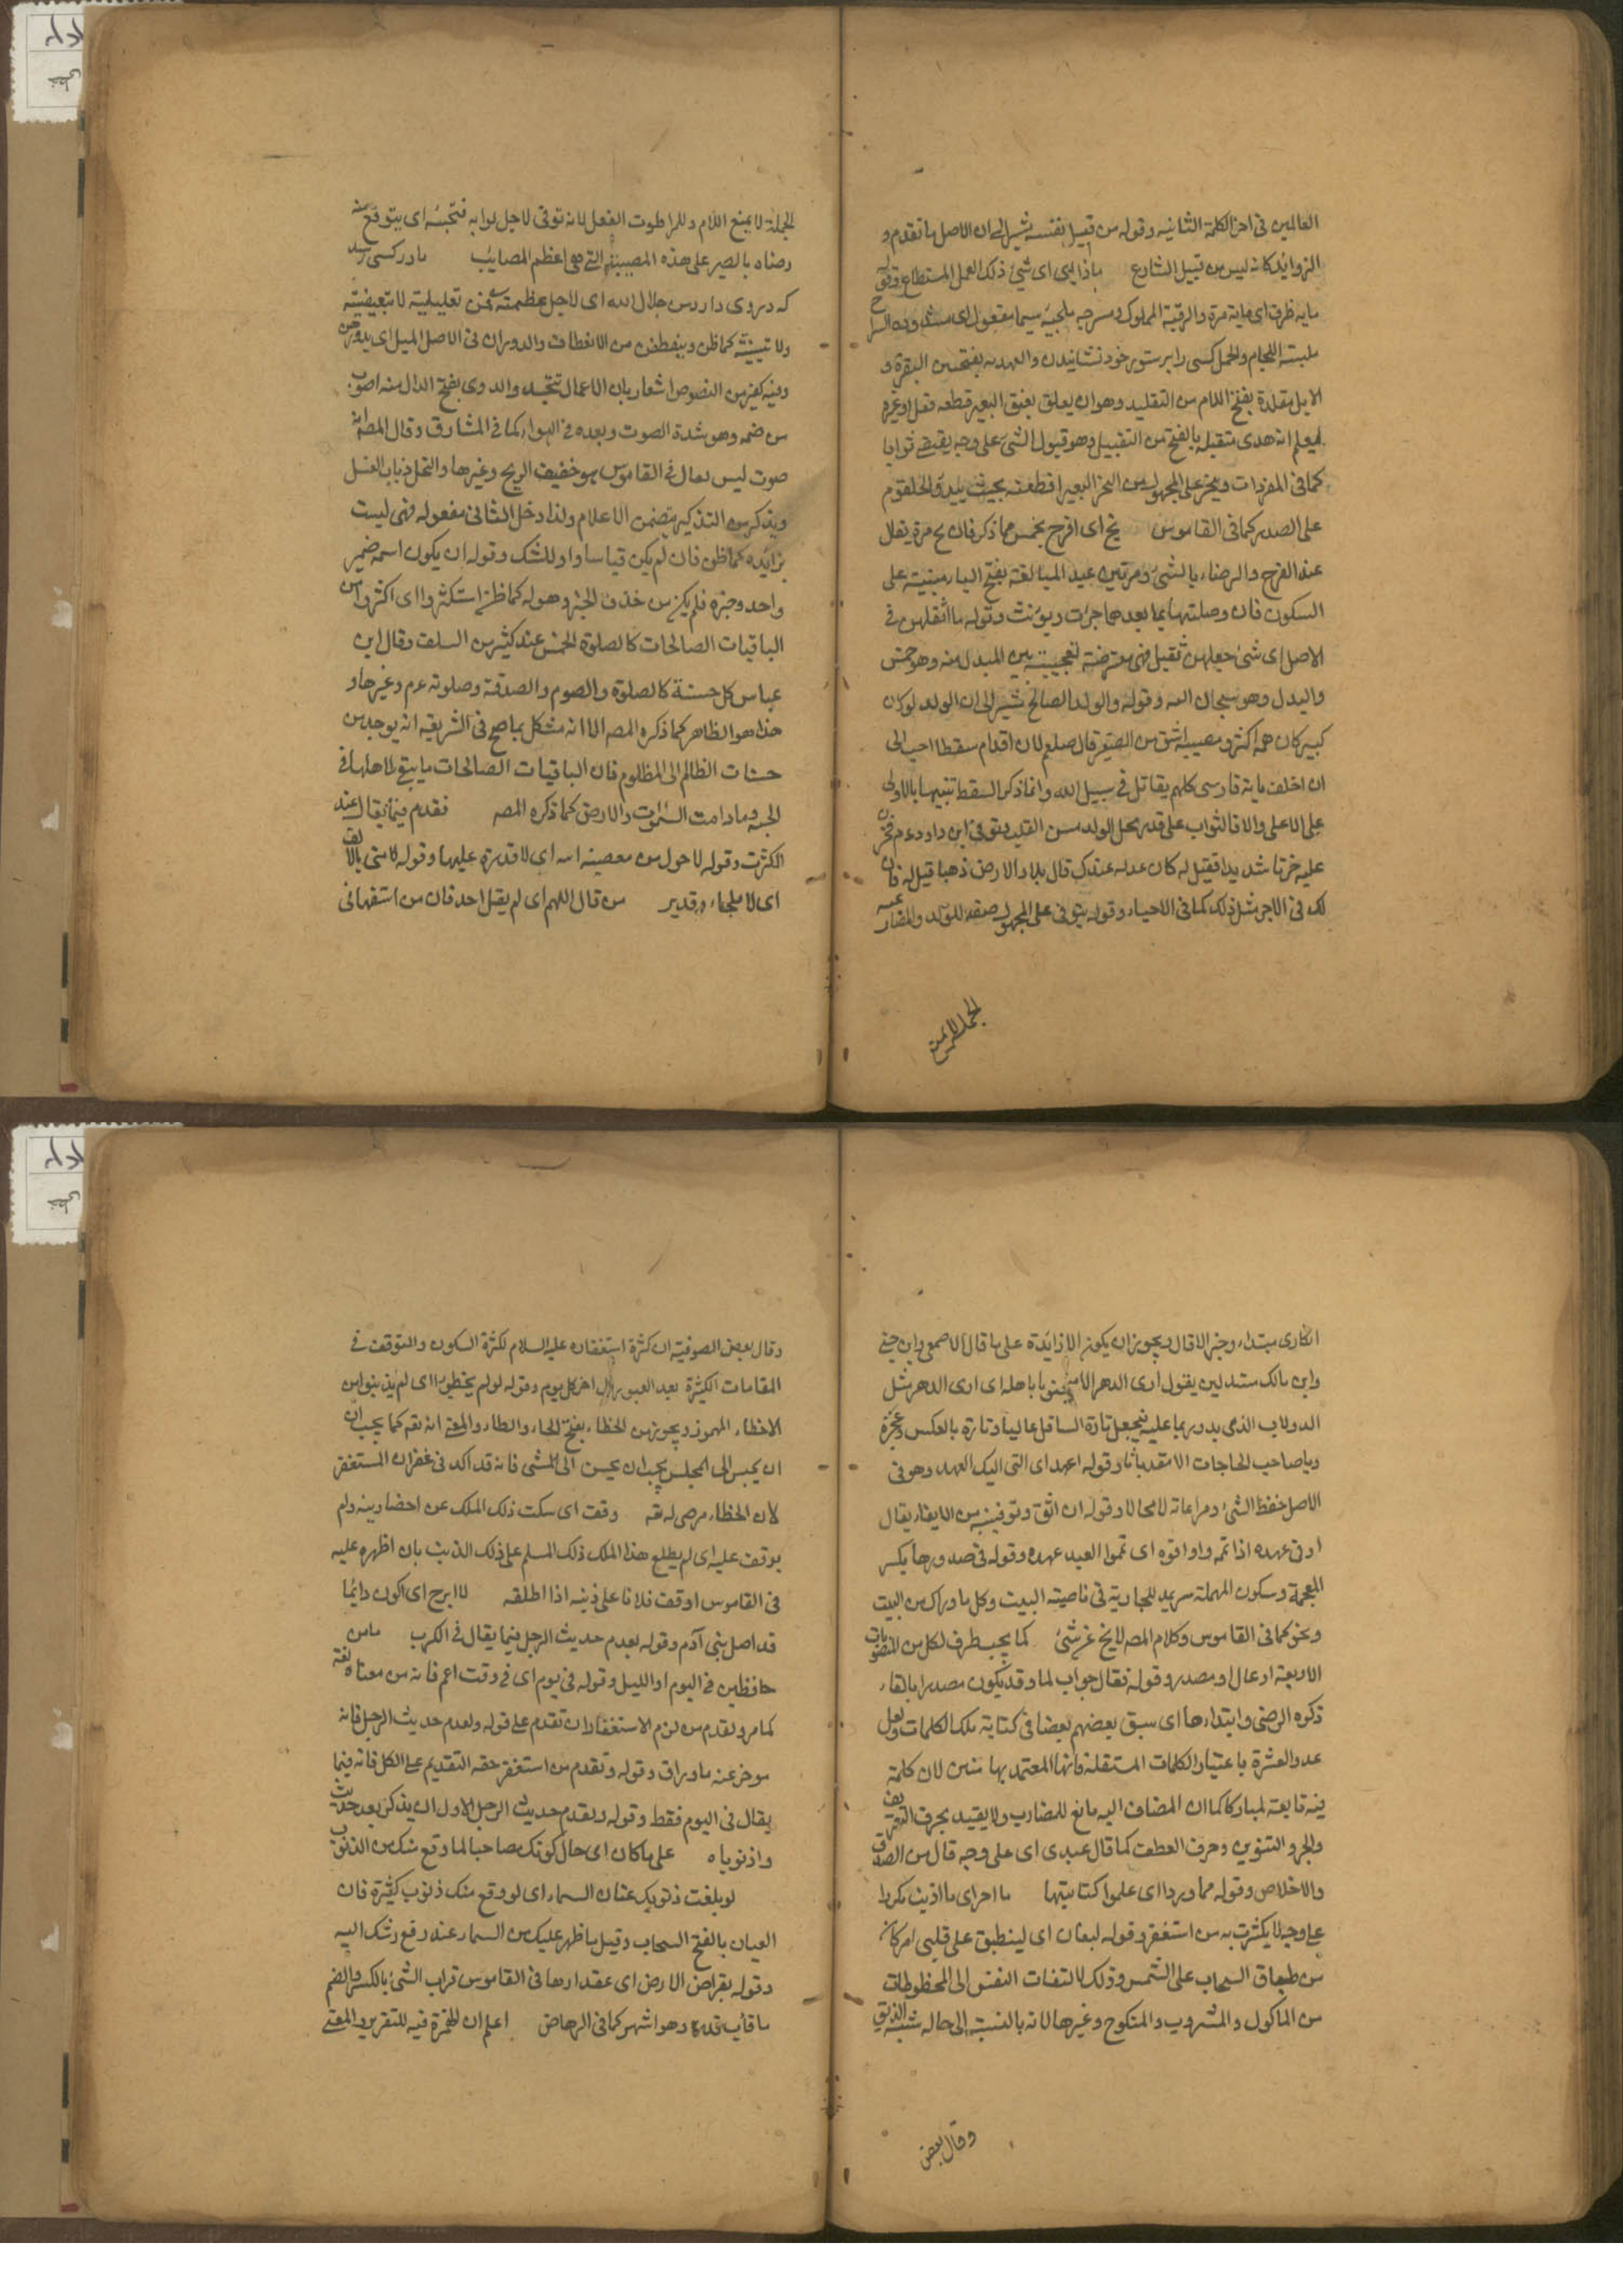 العالمين في اخر الكلمة الثانية وقوله من قبيل نفسه يشير الى ان الاصل ما تقدم و
الزوايد كانه ليس من قبيل الشارع باذا ليى اى شئ ذلك العمل المستطاع وقوله
مايه ظرف اى ماية مرة والرقبة المملوك ومسرجه ملجمة سيما مفعول اى مشدودة السرج
ملبسة اللجام والحمل كسى را بر ستور خود نشانيدن والبدنه بفتحتين البقرة و
الابل مقلدة بفتح اللام من التقليد وهو ان يعلق بعنق البعير قطعه نعل او غيره
ليعلم انه هدى متقبله بالفتح من التقبيل وهو قبول الشئ على وجه يقتضى ثوابا
كما في المفردات وينحر على المجهول من النحر البعير اذا طعنه بحيث يبدو الحلقوم
على الصدر كما في القاموس بخ اى افرح بخمس مما ذكر فان بخ مرة يقال
عند الفرح والرضاء بالشئ ومرتين عند المبالغة بفتح الباء مبنية على
السكون فان وصلتها بما بعدها جرت ونونت وقوله ما اثقلهن في
الاصل اى شئ جعلهن ثقيل فهى معترضة تعجبية بين المبدل منه وهو خمس
والبدل وهو سبحان الله وقوله والولد الصالح يشير الى ان الولد لو كان
كبير كان همه اكثر ومصيبة اشق من الصغير قال صلعم لان اقدم سقطا احب الى
ان اخلف ماية فارس كلهم يقاتل في سبيل الله وانما ذكر السقط تنبيها بالاولى
على الاعلى والا فالثواب على قدر محل الولد من القلب وتوفي ابن داود عم فحزن
عليه حزنا شديدا فقيل له كان عدله عندك قال بملاء الارض ذهبا قيل له فان
لك في الاجر مثل ذلك كما في الاحياء وقوله يتوفى على المجهول صفة للولد والمضارعية
الجملة لا يمنع
الجملة لا يمنع اللام وللرابطوت الفعل لانه توفي لاجل ثوابه فتحبسه اى يتوقع منه
رضاه بالصبر على هذه المصيبة التى هى اعظم المصايب مادر كسى رسد
كه در وى دارد من جلال الله اى لاجل عظمته فمن تعليلية لا تبعيضيته
ولا تبينية كما ظن وينعطفن من الانعطاف والدوران في الاصل الميل اى يدورن
وفيه كغير من النصوص اشعار بان الاعمال تتجسد والدوى بفتح الدال منه اصوب
من ضمه وهو شدة الصوت وبعده في الهواء كما في المشارق وقال المطه انه
صوت ليس بعال في القاموس هو خفيف الريح وغيرها والنحل ذباب العسل
ويذكر من التذكير يتضمن الاعلام ولذا دخل الثانى مفعوله فهى ليست
بزائده كما ظن فان لم يكن قياسا واو للشك وقوله ان يكون اسمه ضمير
واحد وخبره فلم يكن من حذف الخبر وهو له كما ظن استكثروا اى اكثروا من
الباقيات الصالحات كالصلوة الخمس عند كثير من السلف وقال ابن
عباس كل حسنة كالصلوة والصوم والصدقة وصلوته عم وغيرها و
هذا هو الظاهر كما ذكره المصه الا انه مشكل بما صح في الشريعة انه يوجد من
حسنات الظالم الى المظلوم فان الباقيات الصالحات ما يبقى لاهلها في
الجنة ومادامت السموات والارض كما ذكره المصه فقدم فيما يقال عند
الكثرت وقوله لا حول من معصية اسه اى لا قدرة عليها وقوله لا منجى بالالف
اى لا ملجاء وقدير من قال اللهم اى لم يقل احد فان من استفهانى
انكارى مبتداء وخبر الا قال ويجوز ان يكون الا زائدة على ما قال الاصمعى وابن جنى
وابن مالك مستدلين بقول ارى الدهر الا منجنونا باهله اى ارى الدهر مثل
الدولاب الذى يدور بما عليه فيجعل تارة السافل عاليا وتارة بالعكس وعجزة
وباصاحب الحاجات الا معذبا وقوله اعهد اى القى اليك العهد وهو في
الاصل حفظ الشئ ومراعاته لا محالا وقوله ان اثق وتوفينيه من الايفاء يقال
اوفى عهده اذا تمه واوافوه اى تموا العبد عهده وقوله في صدورها بكسر
المعجمة وسكون المهملة سريد للجارية في ناصية البيت وكل ماوراك من البيت
ونحو كما في القاموس وكلام المصه لايخ عن شئ كما يجب ظرف لكل من المنصوبات
الاربعة او عال او مصدر وقوله فقال جواب لما وقد يكون مصدرا بالفاء
ذكره الرضى وابتداءها اى سبق بعضهم بعضا في كتابة تلك الكلمات ولعل
عدد العشرة باعتبار الكلمات المستقلة فانها المعتمد بها منين لان كلمة
فيه تابعة لمباركا كما ان المضاف اليه مانع للمضارب ولا يقيد بحرف التعريف
والجر والتنوين وحرف العطف كما قال عبدى اى على وجه قال من الصدق
والاخلاص وقوله مما وردا اى علموا كتابيتها ما احراى ما اذنب مكررا
على وجه لا يكثرت به من استغفر وقوله ليغان اى لينطبق على قلبى امر كائن
من طباق السحاب على الشمس وذلك لالتفات النفس الى المحظوظات
من الماكول والمشروب والمنكوح وغيرها لانه بالنسبة الى حاله شبيه الذنب
وقال بعض
وقال بعض الصوفية ان كثرة استغفاره عليه السلام لكثرة السكون والتوقف في
المقامات الكثيرة بعد العبور باول اخر كل يوم وقوله لو لم يخطوا اى لم يذنبوا من
الاخطاء المهموز ويجوز من الخطاء بفتح الخاء والطاء والمعنى انه تعه كما يجب ان
ان يحسن الى المجلس يجب ان يحسن الى المسئ فانه قد اكد في غفران المستغفر
لان الخطاء مرضى له تعه وقف اى سكت ذلك الملك عن احضار ينه ولم
يوقف عليه اى لم يطلع هذا الملك ذلك المسلم على ذلك الذنب بان اظهره عليه
في القاموس اوقفت فلانا على ذنبه اذا اطلقه لا ابرح اى اكون دايما
قد اصل بنى آدم وقوله بعدم حديث الرجل فيما يقال في الكرب مامن
حافظين في اليوم او الليل وقوله في يوم اى في وقت اعم فانه من معناه لغة
كما مر وتقدم من لزم الاستغفار ان تقدم على قوله وتعدم حديث الرجل فانه
موخر عنه ماوراق وقوله وتقدم من استغفر حقه التقديم على الكل فانه فيما
يقال في اليوم فقط وقوله وتقدم حديث الرجل الاول ان يذكر بعد حديث
واذنوباه على ما كان اى حال كونك مصاحبا لما وقع منك من الذنوب
لو بلغت ذنوبك عنان السماء اى لو وقع منك ذنوب كثيرة فان
العيان بالفتح السحاب وقيل ما ظهر عليك من السماء عند رفع رئسك اليه
وقوله بقراض الارض اى عقدارها في القاموس قراب الشئ بالكسر والضم
ما قارب قدره وهو اشهر كما في الرهاض اعلم ان الهمزة فيه للتقرير والمعنى